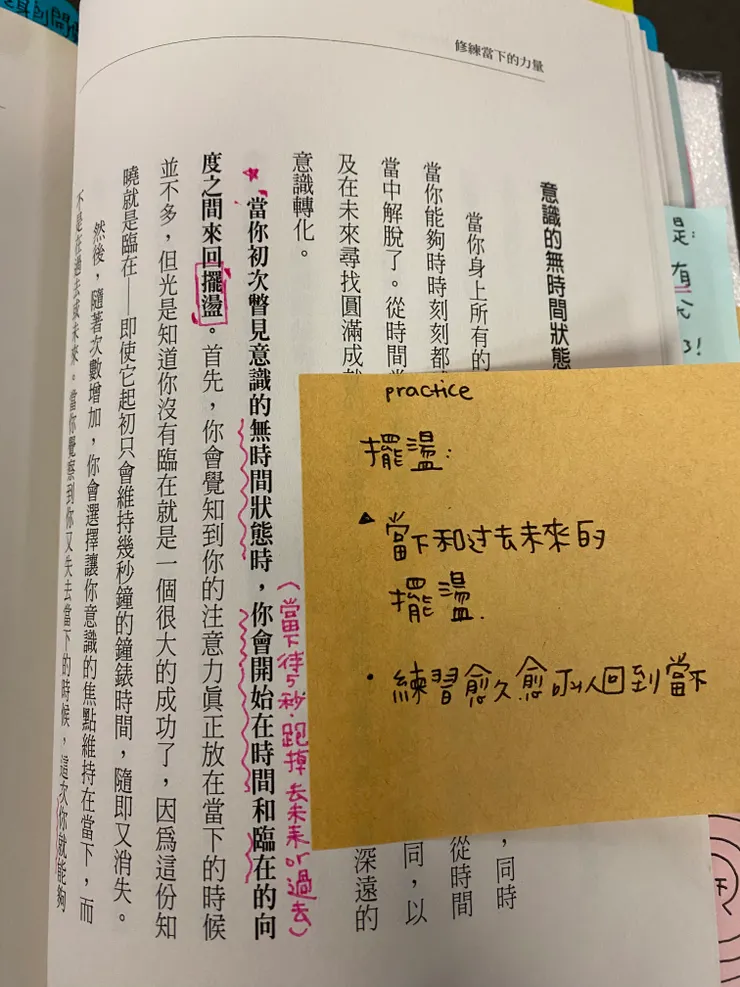 修練當下的力量
意識的無時間狀態
當你身上所有的
當你能夠時時刻刻都
，同時
當中解脫了。從時間
從時間
及在未來尋找圓滿成就
同，以
深遠的
意識轉化。
（當下待5秒，跑掉去未來or過去）
當你初次瞥見意識的無時間狀態時，你會開始在時間和臨在的向
度之間來回擺盪。首先，你會覺知到你的注意力真正放在當下的時候
並不多，但光是知道你沒有臨在就是一個很大的成功了，因為這份知
曉就是臨在——即使它起初只會維持幾秒鐘的鐘錶時間，隨即又消失。
然後，隨著次數增加，你會選擇讓你意識的焦點維持在當下，而
不是在過去或未來。當你覺察到你又失去當下的時候，這次你就能夠
practice
擺盪：
當下和过去未來的
擺盪.
練習愈久愈可以回到當下
是:
有